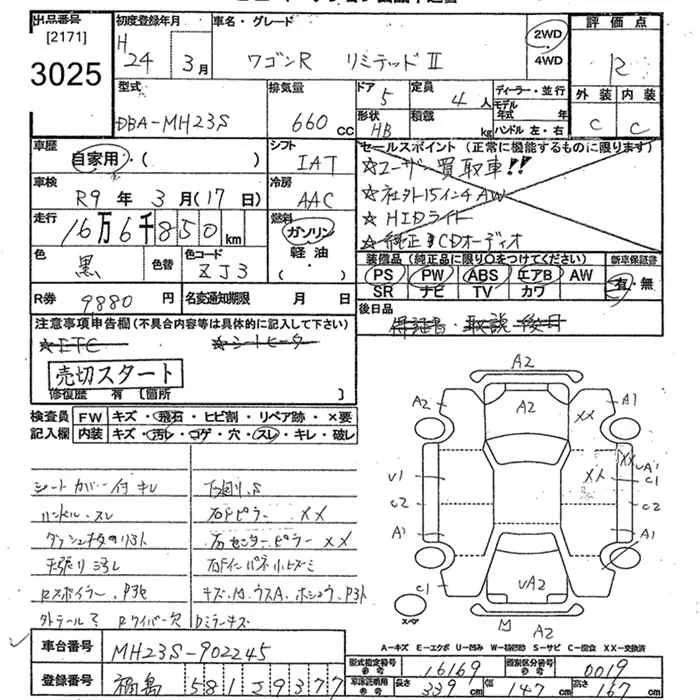 出品番号 [2171] 3025
初度登録年月 H24 3月
車名・グレード ワゴンR リミテッドⅡ
2WD
4WD
評価点 R
外装 内装
C C
型式 DBA-MH23S
排気量 660cc
ドア 5
形状 HB
定員 4人
積載 kg
ディーラー・並行
モデル年式 年
ハンドル 左・右
車歴 自家用・( )
シフト IAT
車検 R9年3月(17日)
冷房 AAC
走行 16万6千850km
燃料 ガソリン
軽油・( )
色 黒 色替 色コード ZJ3
R券 9880円 名変通知期限 月 日
セールスポイント(正常に機能するものに限ります)
☆ユーザー買取車!!
☆社外15インチAW
☆HIDライト
☆純正CDオーディオ
装備品(純正品に限り○をつけてください)
PS PW ABS エアB AW
SR ナビ TV カワ
新車保証書
有・無
後日品
保証書・取説 後日
注意事項申告欄(不具合内容等は具体的に記入して下さい)
☆ETC ☆シートヒーター
売切スタート
修復歴 有 [箇所 ]
検査員記入欄
FW キズ・飛石・ヒビ割・リペア跡・×要
内装 キズ・汚レ・コゲ・穴・スレ・キレ・破レ
シートカバー付 キレ 下廻りS
ハンドル・スレ 右Fピラー XX
右センターピラー XX
天張り汚レ
Rスポイラー、P3化
Rワイパー欠 Dミラーキズ
A2
A2 A2 A1
XX
XX UA1
U1 XX C1
C2 C2
A1 A1
C1 UA2
スペア
M A2
A-キズ E-エクボ U-凹み W-補修跡 S-サビ C-腐食 XX-交換済
車台番号 MH23S-902245
登録番号 福島 581 J9377
型式指定番号 参考 16169
類別区分番号 参考 0019
車体記載寸法 参考 長さ 339cm 幅 147cm 高さ 167cm